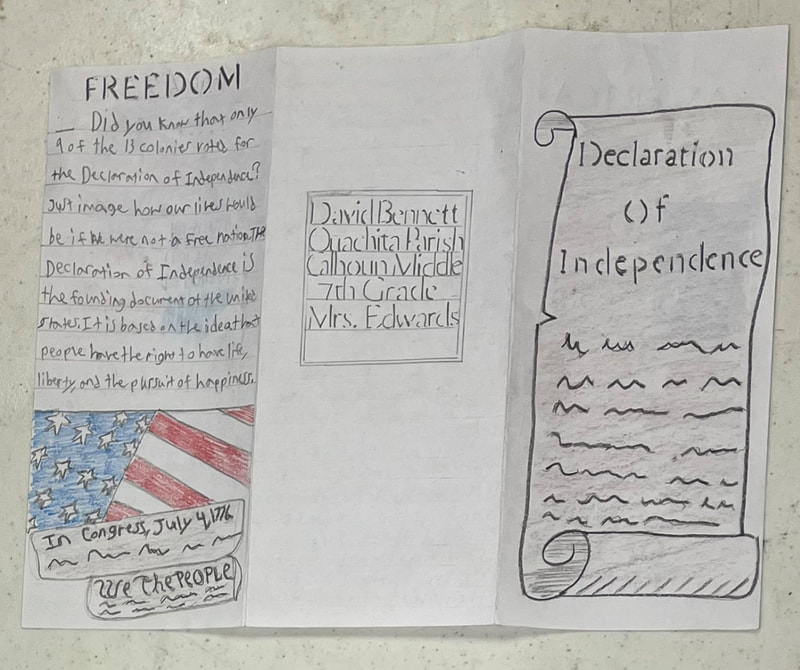 FREEDOM
Did you know that only
9 of the 13 colonies voted for
the Declaration of Independence?
Just image how our lives would
be if we were not a free nation. The
Declaration of Independence is
the founding document of the united
states. It is based on the idea that
people have the right to have life,
liberty, and the pursuit of happiness.
In Congress, July 4, 1776
We The PEOPLE
David Bennett
Ouachita Parish
Calhoun Middle
7th Grade
Mrs. Edwards
Declaration
Of
Independence